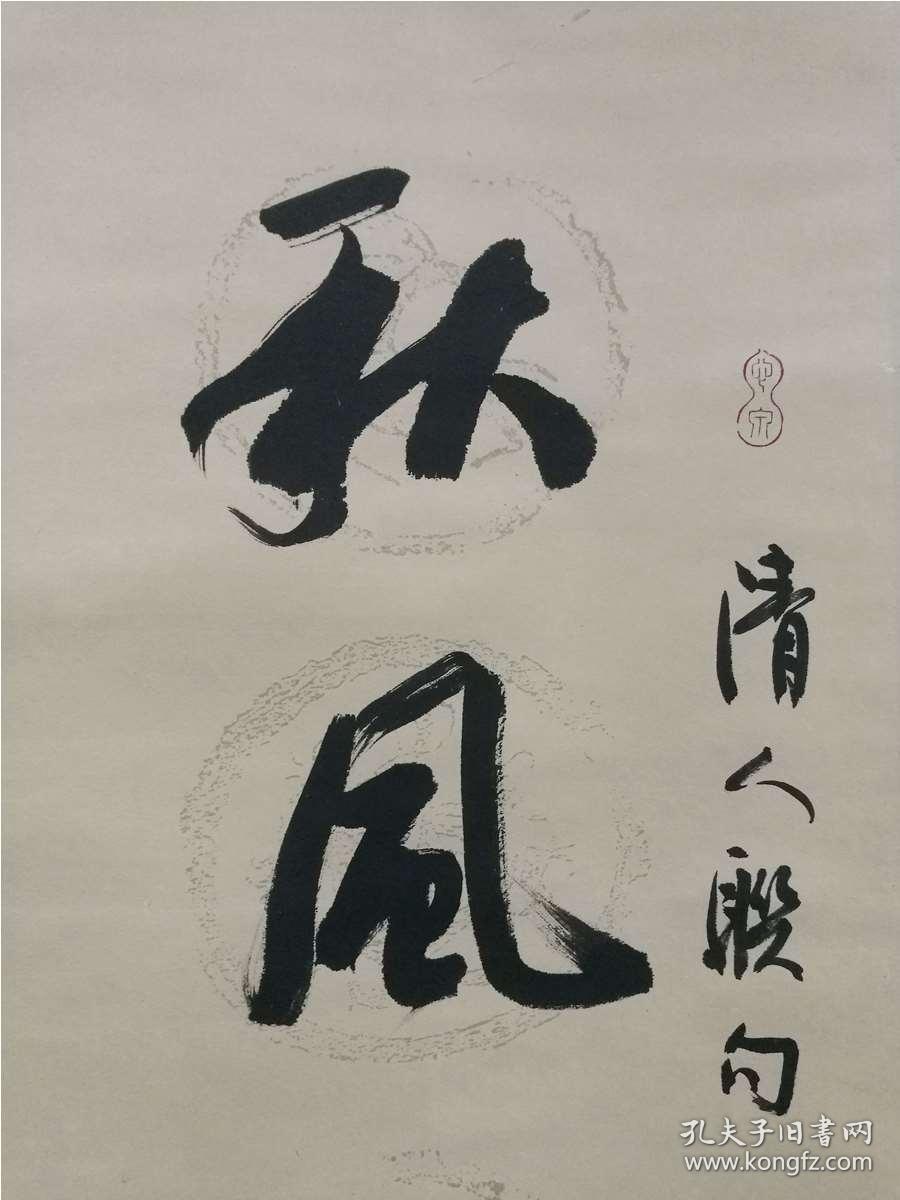 清人联句
秋风
孔夫子旧书网
www.kongfz.com